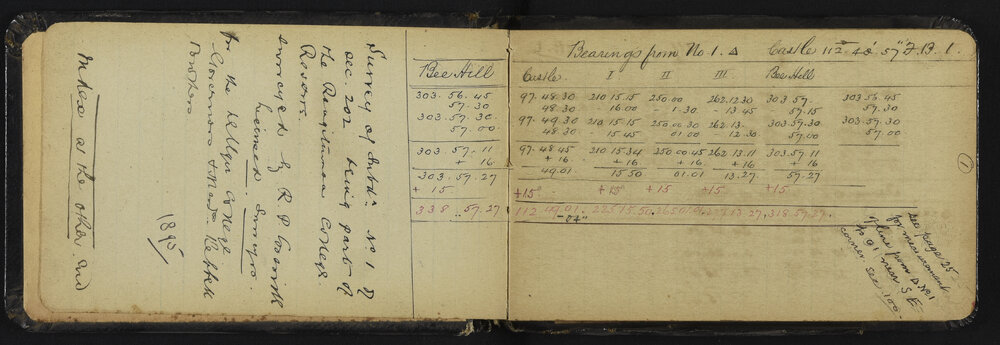 Survey of Subdn. No 1 of
sec. 202 being part of
the Rangitumau College
Reserve.
surveyed by R P
Licensed Surveyor.
for the College
Governors
1895
Index at the other end
Bee Hill
303.56.45
57.30
303.57.30
57.00
303.57.11
+ 16
303.57.27
+ 15
338..57.27
Bearings from No. 1. △ Castle 112° 48' 57" F.B. 1.
Castle. I II III Bee Hill
97.48.30 210 15.15 250.00 262.12.30 303.57. 303.56.45
48.30 - 16.00 - 1.30 - 13 45 57.15 57.30
97.49.30 210 15.15 250.00 30 262.13. 303.57.30 303.57.30
48.30 - 15.45 01.00 12.30 57.00 57.00
97.48.45 210 15.34 250.00.45 262 13.11 303 57.11
+ 16 + 16 + 16 + 16 + 16
49.01 15.50 01.01 13.27 57.27
+15° +15° +15 +15 +15
112.49.01. 225 15.50 265 01.01 277 13 27 318.57.27
-04"
1
see page 25
for measurement
of line from △ No 1
to 91 near S E
corner sec 100